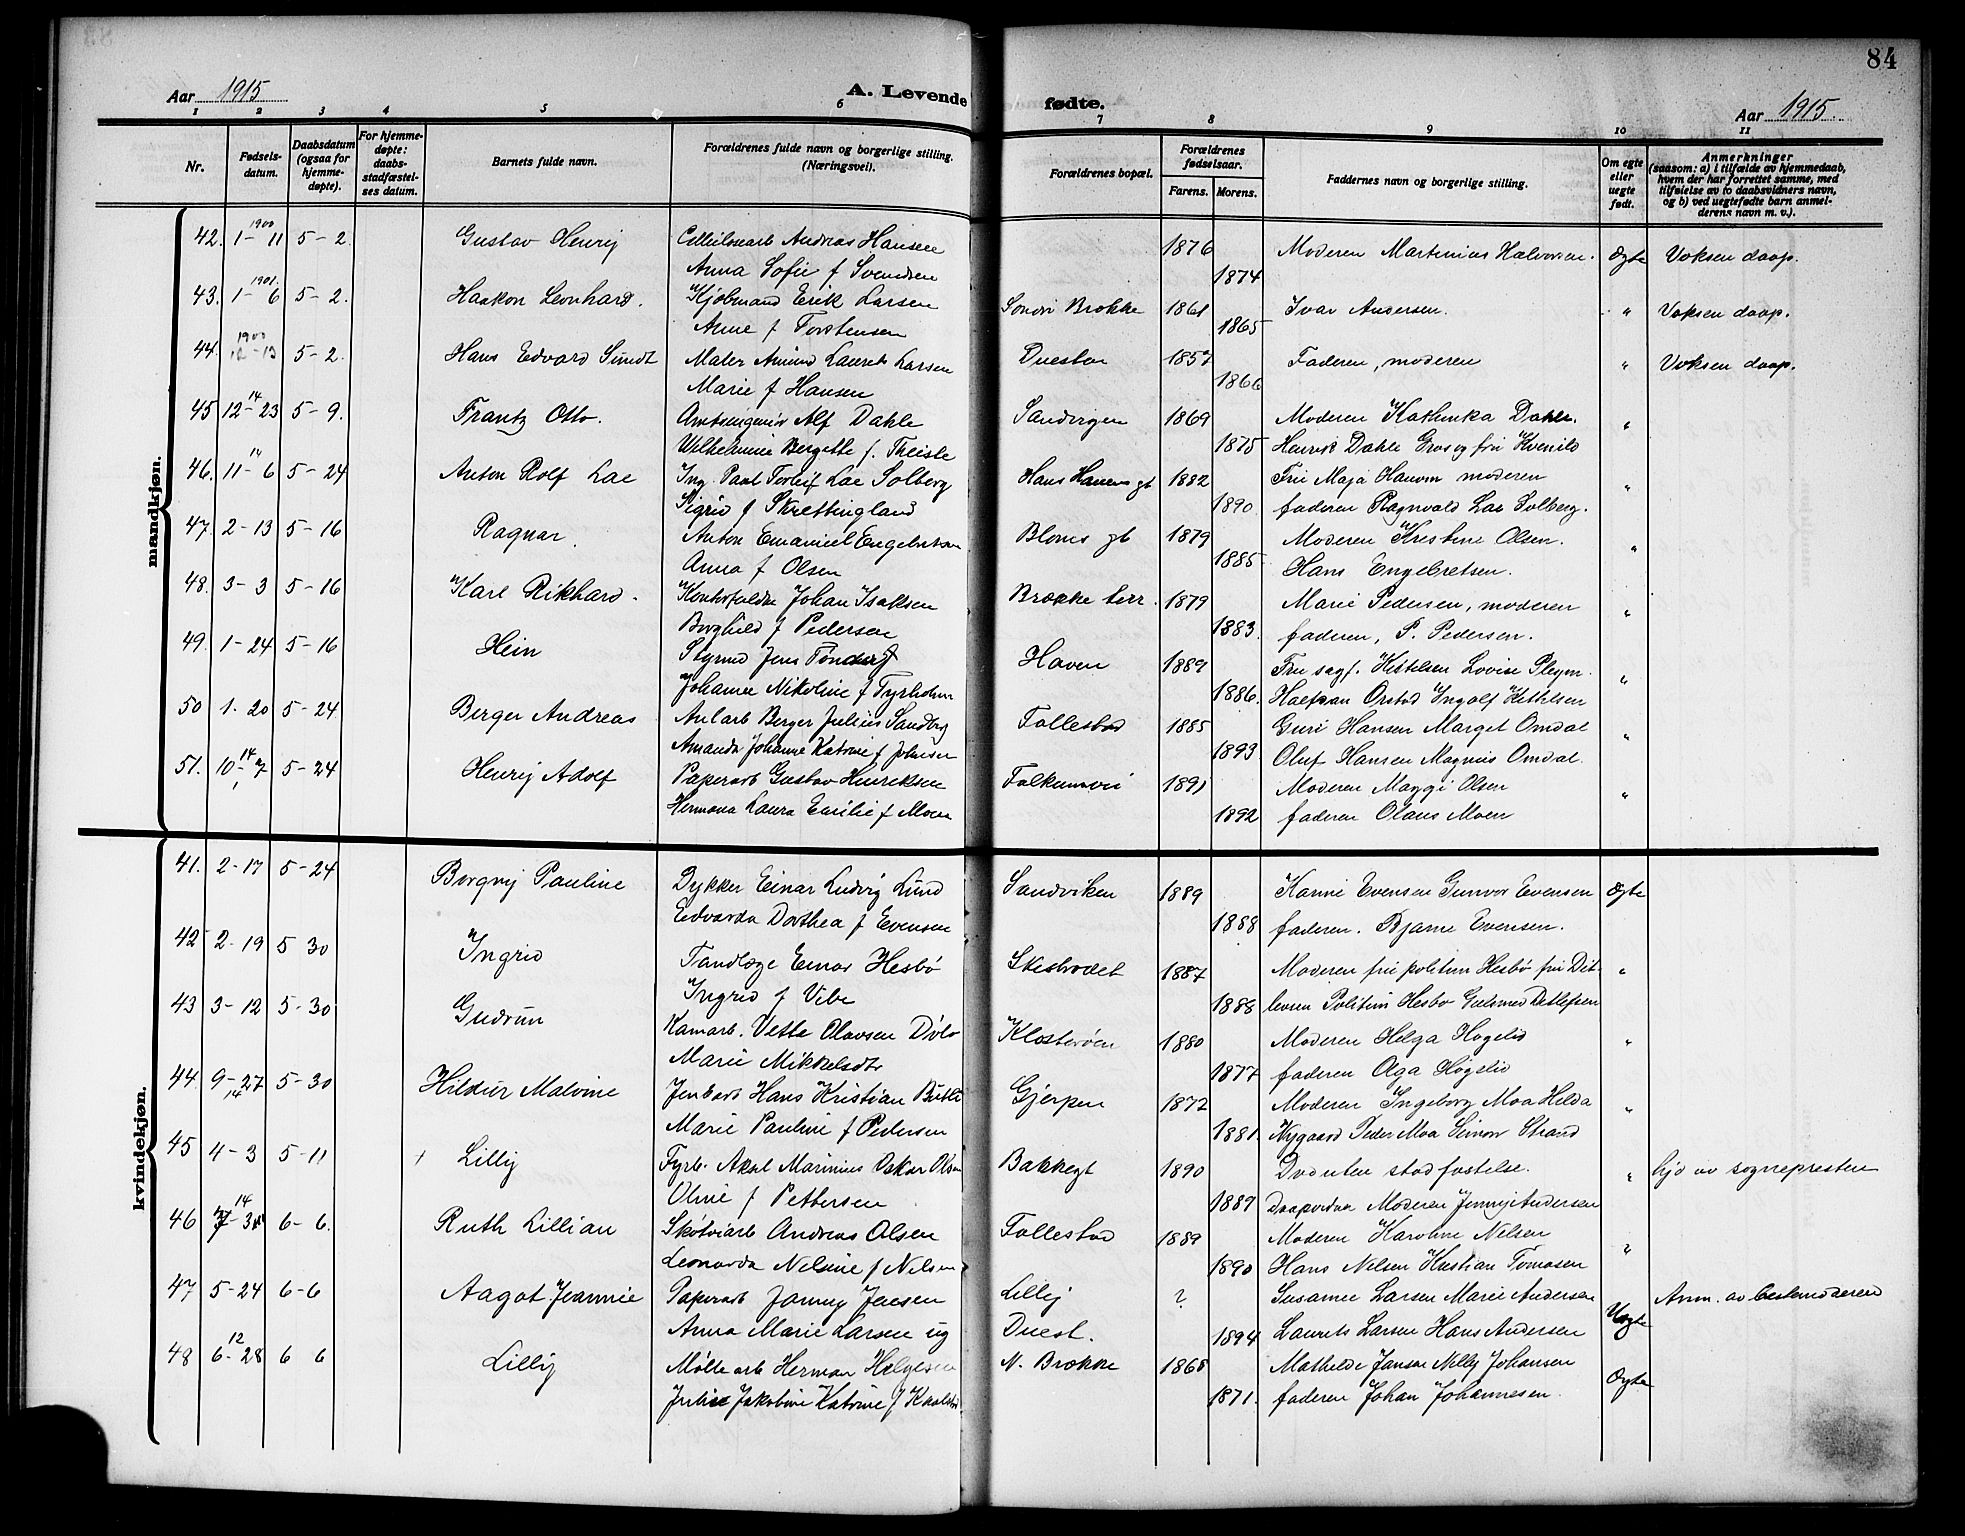 84
Aar 1915
A. Levende fødte.
Aar 1915.
1 2 3 4 5 6 7 8 9 10 11
Nr.
Fødsels-datum.
Daabsdatum (ogsaa for hjemme-døpte).
For hjemme-døpte: daabs-stadfæstel-ses datum.
Barnets fulde navn.
Forældrenes fulde navn og borgerlige stilling. (Næringsvei).
Forældrenes bopæl.
Forældrenes fødselsaar.
Farens. Morens.
Faddernes navn og borgerlige stilling.
Om egte eller uegte født.
Anmerkninger (saasom: a) i tilfælde av hjemmedaab, hvem der har forrettet samme, med tilføielse av to daabsvidners navn, og b) ved uegtefødte barn anmelderens navn m. v.).
mandkjøn.
42. 1-11 1900 5-2. Gustav Henrij Andreas Hansen 1876 Moderen Martinius Halvorsen. Ægte Voksen daap.
Anna Sofie f Svendsen 1874
43. 1-6 1901. 5-2. Haakon Leonhard. Kjøbmand Erik Larsen Søndri Brokke 1861 Ivar Andersen. " Voksen daap.
Anne f Torstensen 1865
44. 12-13 1900 5-2. Hans Edvard Sundt Maler Amund Laurets Larsen Duestien 1857 Faderen, moderen " Voksen daap.
Marie f Hansen 1866
45 12-23 14 5-9. Frantz Otto. Amtsingeniør Alf Dahle Sandvigen 1869 Moderen Kathinka Dahle. "
Wilhelmine Bergette f. Theiste 1875 Henrik Dahle
46. 11-6 14 5-24 Anton Rolf Lae Ing. Paul Torleif Lae Solberg Hans Hansens gt 1882 Fru Maja Hanom moderen "
Sigrid f Skrettingland 1890 faderen Ragnvald Lae Solberg.
47. 2-13 5-16 Ragnar. Anton Emanuel Engebretsen Bloms gt 1879 Moderen Kristine Olsen. "
Anna f Olsen 1885 Hans Engebretsen.
48. 3-3 5-16 Karl Rikhard. Johan Isaksen Brække terr. 1879 Marie Pedersen, moderen "
Borghild f Pedersen 1883. faderen, P. Pedersen.
49. 1-24 5-16 Hein Styrmd Jens Tønder Haven 1889 Fru sagf. Kittelsen Lovise Pleym. "
Johanne Nikoline f Tyrholm 1886. Halfdan Ørstad Ingolf Kittilsen
50 1. 20 5-24 Berger Andreas Anlarb Berger Julius Sandberg Follestad 1885 Guri Hansen Marget Omdal "
Amanda Johanne Katrine f Johnsen 1893 Oluf Hansen Magnus Omdal.
51. 10-7 14 5-24 Henrij Adolf Paperarb Gustav Henriksen Falkumvei 1891 Moderen Maggi Olsen "
Hermana Laura Emilie f Moen 1892 faderen Olaus Moen
kvindekjøn.
41. 2-17 5-24 Borgnij Pauline Dykker Einar Ludvig Lund Sandviken 1889 Hanni Evensen Gunvor Evensen Ægte
Edvarda Dorthea f Evensen 1888 faderen. Bjarne Evensen.
42 2-19 5 30 Ingrid Tandlæge Einar Hesbø Skistredet 1887 Moderen fru politim Hesbø fru Det- "
Ingrid f Vibe 1888 levsen Politim Hesbø Detlefsen
43 3-12 5-30 Gudrun Kamarb. Vetle Olavsen Dølo Klosterøen 1880 Moderen Helga Høgelid "
Marie Mikkelsdtr 1877 faderen Olga Høgelid
44. 9-27 14 5-30 Hildur Malvine Jenbarb Hans Kristian Gjerpen 1872 Moderen Ingeborg Moa Hilda "
Marie Pauline f Pedersen 1881. Nygaard Peder Moa Simon Strand
45 4-3 5-11 + Lillij Fyrb. Aksel Marinius Oskar Olsen Bakkegt 1890 Død uten stadfæstelse. " hjd av sognepresten
Oline f Pettersen 1887 Daapsvidner Moderen Jennij Andersen
46 7-31 14 6-6. Ruth Lillian Skotøiarb Andreas Olsen Follestad 1889 Moderen Karoline Nelsen "
Leonarda Nelsine f Nelsen 1890 Hans Nelsen Kristian Tomasen
47 5-24 6-6 Aagot Jeannie Paperarb Jonny Jensen Lillej ? Susanne Larsen Marie Andersen Uegte Anm. av bestemoderen
Anna Marie Larsen ug Duest. 1894 Laurits Larsen Hans Andersen
48 6-28 12 6 6 Lillij Mølle arb Herman Helgesen N. Brække 1868 Mathilde Jansen Nelly Johansen Ægte
Julie Jakobine Katrine f 1871. faderen Johan Johannesen.